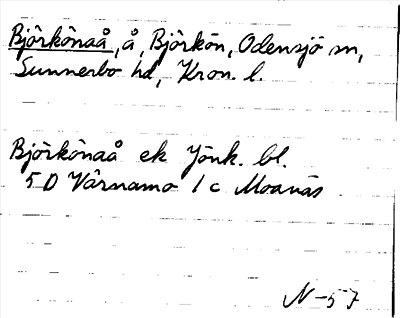 Björkönaå, å, Björkön, Odensjö sn,
Sunnerbo hd, Kron. l.
Björkönaå ek Jönk. bl.
5 D Värnamo 1 c Moanäs
N-57